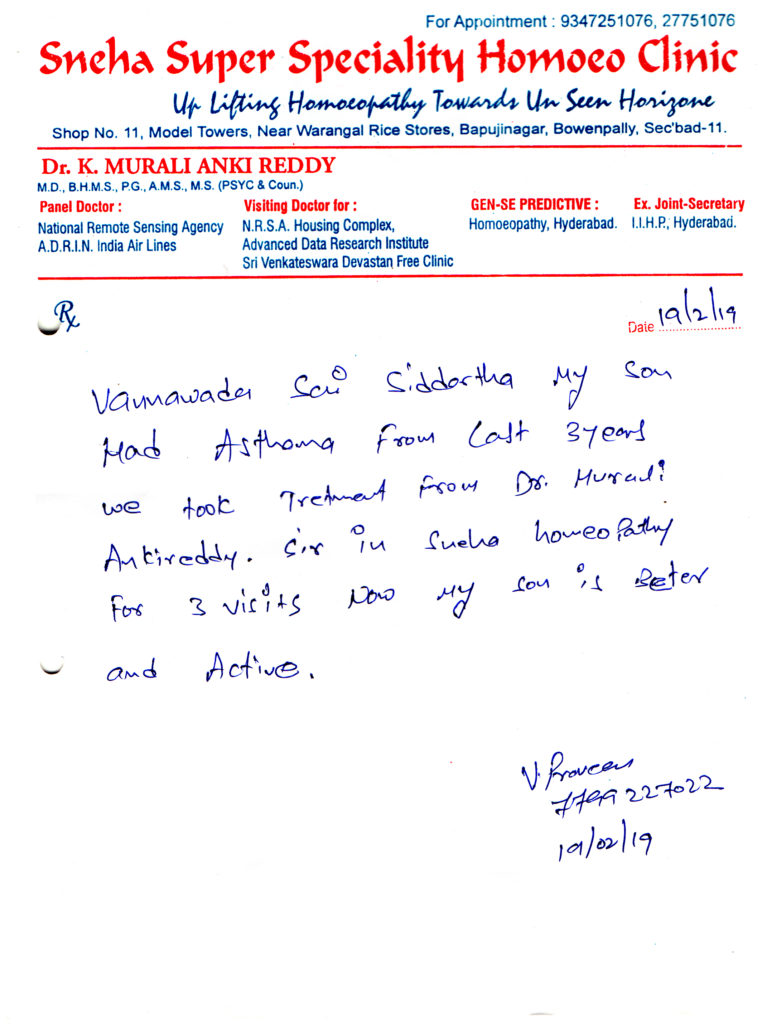 For Appointment : 9347251076, 27751076
Sneha Super Speciality Homoeo Clinic
Up Lifting Homoeopathy Towards Un Seen Horizone
Shop No. 11, Model Towers, Near Warangal Rice Stores, Bapujinagar, Bowenpally, Sec'bad-11.
Dr. K. MURALI ANKI REDDY
M.D., B.H.M.S., P.G., A.M.S., M.S. (PSYC & Coun.)
Panel Doctor :
National Remote Sensing Agency
A.D.R.I.N. India Air Lines
Visiting Doctor for :
N.R.S.A. Housing Complex,
Advanced Data Research Institute
Sri Venkateswara Devastan Free Clinic
GEN-SE PREDICTIVE :
Homoeopathy, Hyderabad.
Ex. Joint-Secretary
I.I.H.P., Hyderabad.
Rx
Date 19/2/19
Vannawada Sai Siddartha My Son
Had Asthama From Last 3 years
we took Tretment From Dr. Murali
Ankireddy. Sir in Sneha homeopathy
For 3 visits Now My son is Beter
and Active.
V. Praveen
7799 227022
19/02/19